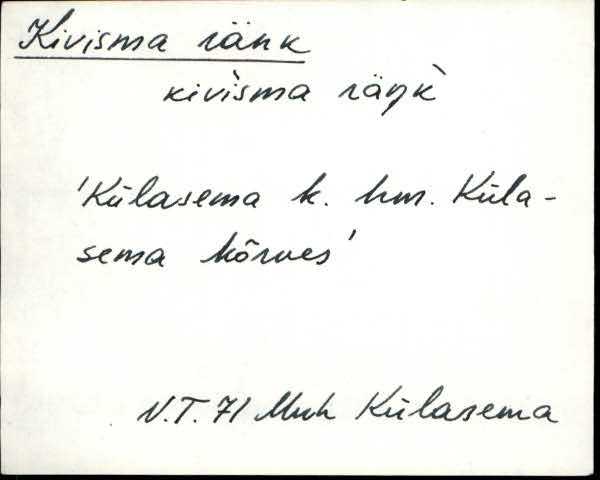 Kivisma ränk
kivìsma räŋk̀
'Külasema k. hm. Küla-
sema kõrves'
V.T. 71 Muh Külasema